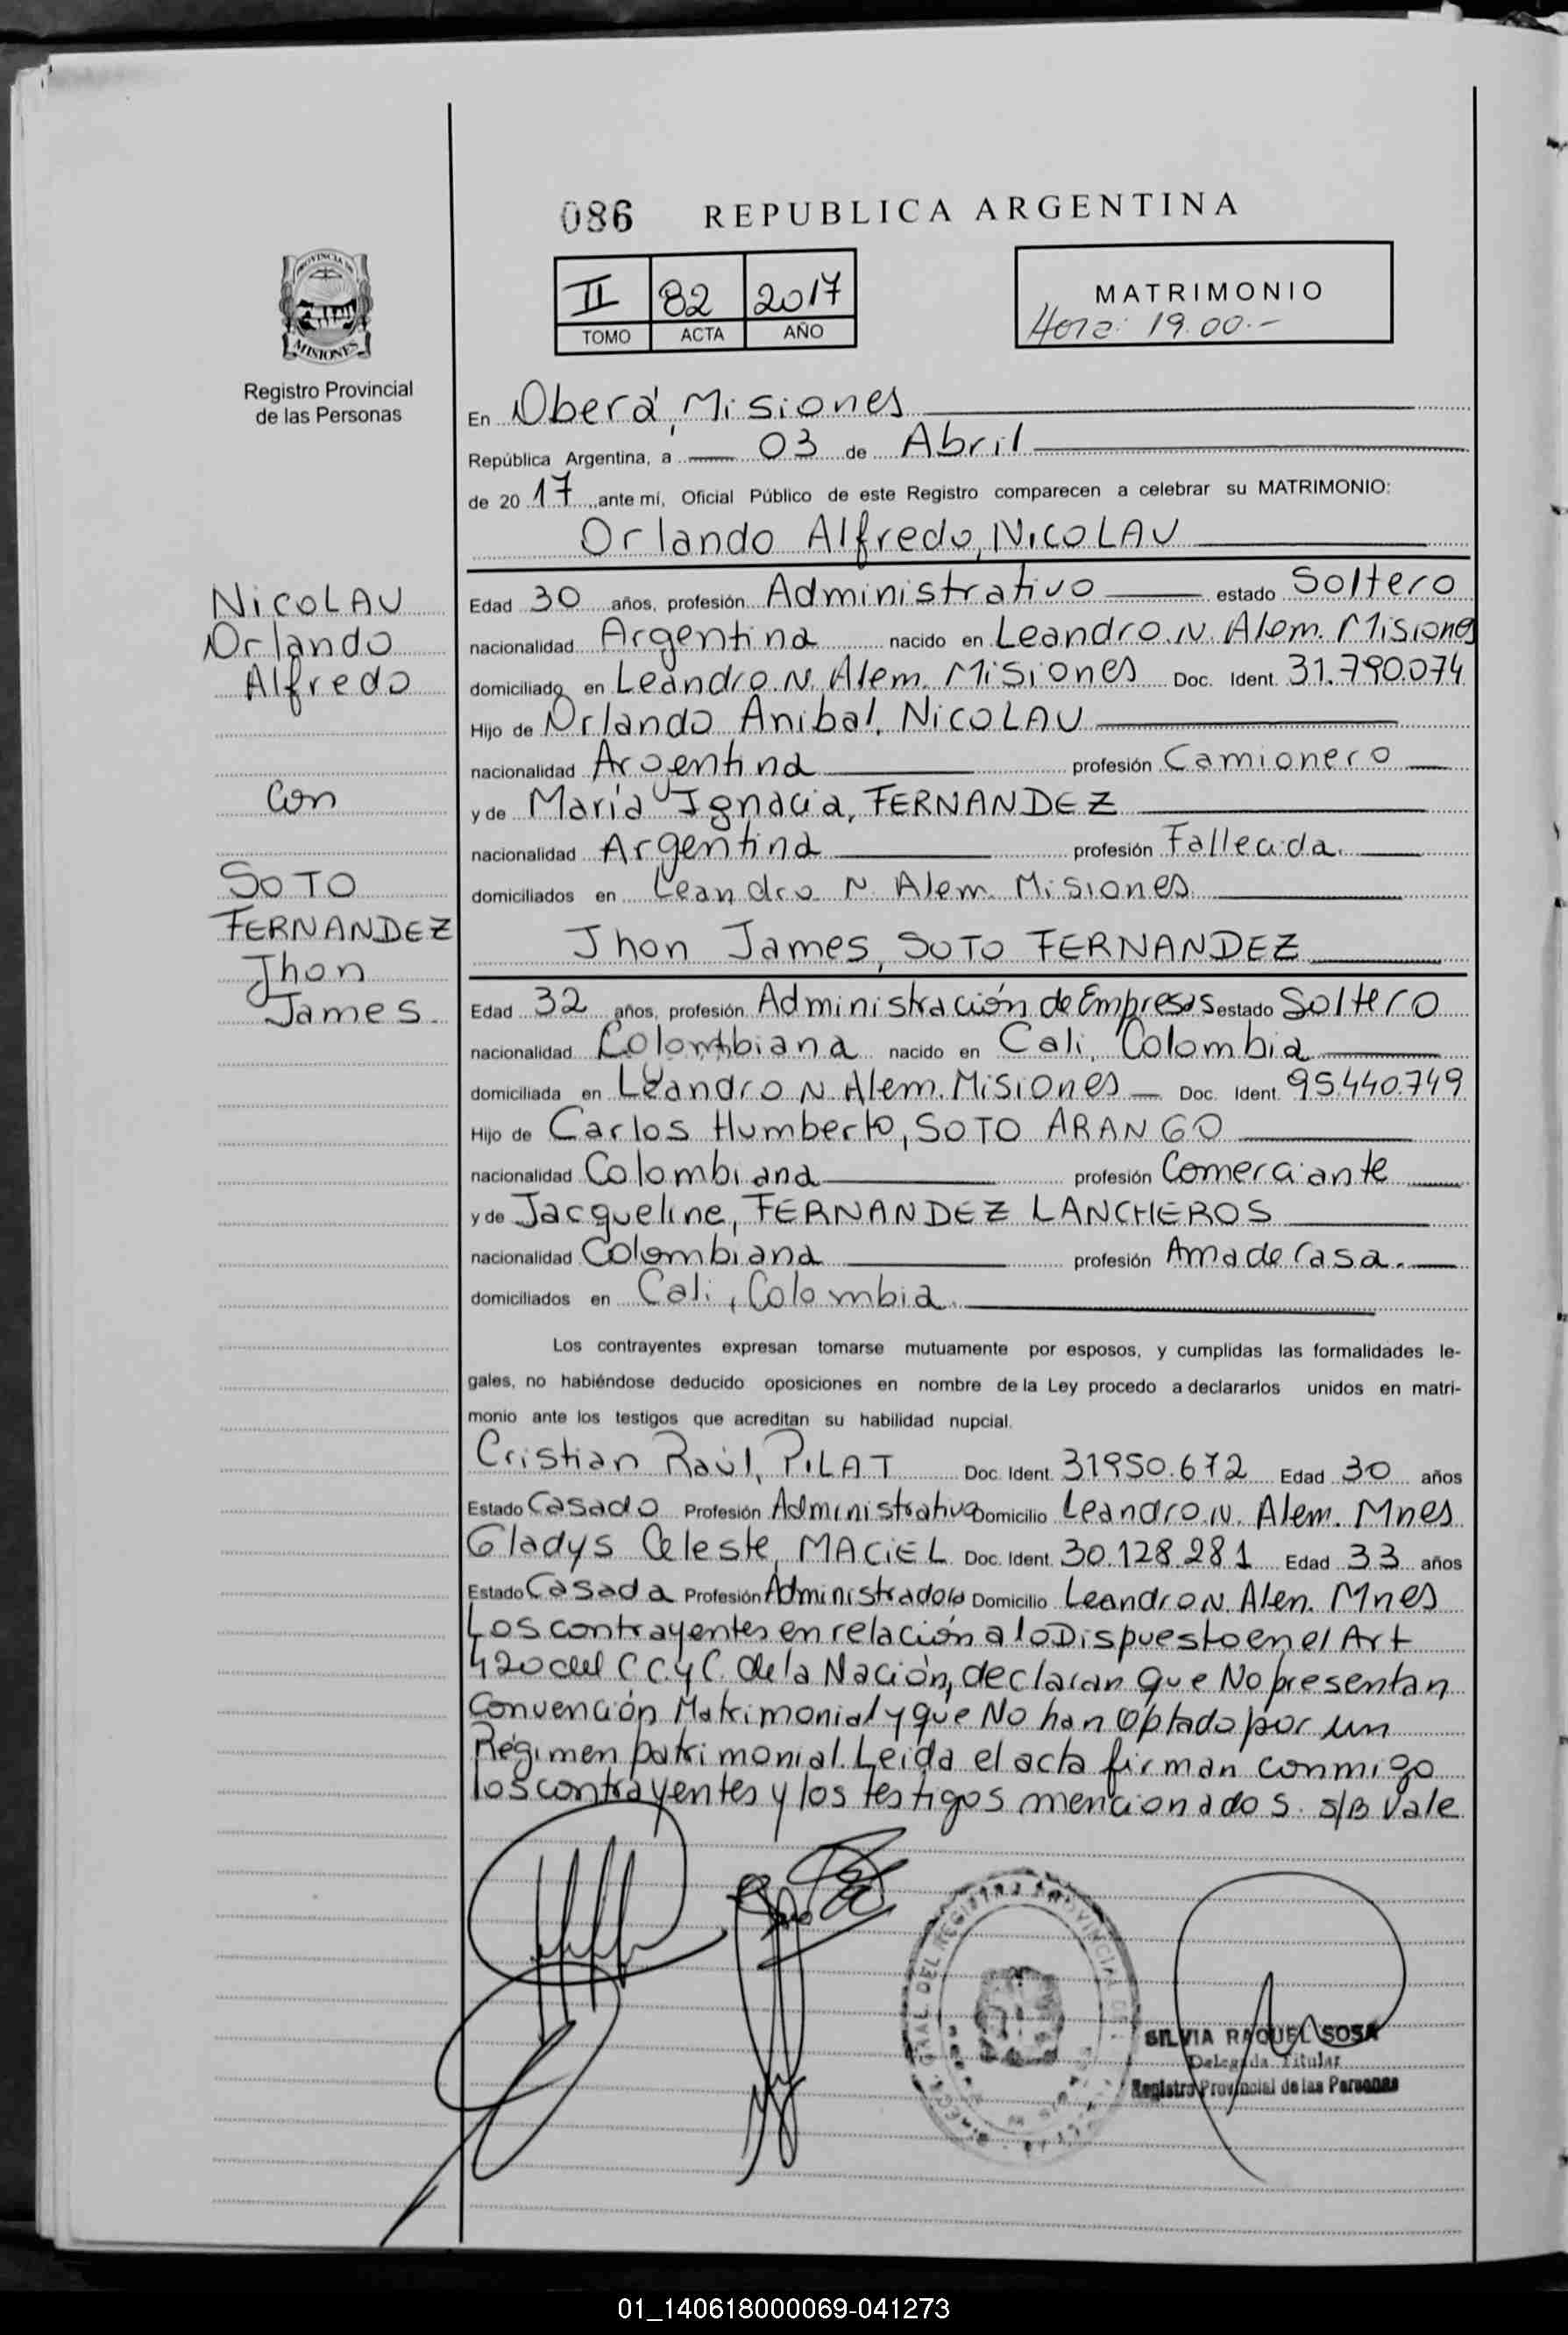 086 REPUBLICA ARGENTINA
II 82 2017
TOMO ACTA AÑO
MATRIMONIO
Hora: 19.00.-
PROVINCIA DE
MISIONES
Registro Provincial
de las Personas
En Oberá, Misiones
República Argentina, a 03 de Abril
de 2017, ante mí, Oficial Público de este Registro comparecen a celebrar su MATRIMONIO:
Orlando Alfredo, NICOLAU
NICOLAU
Orlando
Alfredo
Con
SOTO
FERNANDEZ
Jhon
James.
Edad 30 años, profesión Administrativo estado Soltero
nacionalidad Argentina nacido en Leandro. N. Alem. Misiones
domiciliado en Leandro. N. Alem. Misiones Doc. Ident. 31.790.074
Hijo de Orlando Anibal, NICOLAU
nacionalidad Argentina profesión Camionero
y de María Ignacia, FERNANDEZ
nacionalidad Argentina profesión Fallecida.
domiciliados en Leandro N. Alem. Misiones
Jhon James, SOTO FERNANDEZ
Edad 32 años, profesión Administración de Empresas estado Soltero
nacionalidad Colombiana nacido en Cali, Colombia
domiciliada en Leandro N. Alem. Misiones Doc. Ident. 95.440.749
Hijo de Carlos Humberto, SOTO ARANGO
nacionalidad Colombiana profesión Comerciante
y de Jacqueline, FERNANDEZ LANCHEROS
nacionalidad Colombiana profesión Ama de Casa.
domiciliados en Cali, Colombia.
Los contrayentes expresan tomarse mutuamente por esposos, y cumplidas las formalidades le-
gales, no habiéndose deducido oposiciones en nombre de la Ley procedo a declararlos unidos en matri-
monio ante los testigos que acreditan su habilidad nupcial.
Cristian Raúl, PILAT Doc. Ident. 31950.672 Edad 30 años
Estado Casado Profesión Administrativo Domicilio Leandro. N. Alem. Mnes
Gladys Celeste, MACIEL Doc. Ident. 30.128.281 Edad 33 años
Estado Casada Profesión Administradora Domicilio Leandro N. Alen. Mnes
Los contrayentes en relación a lo Dispuesto en el Art
420 del C.C.y C. de la Nación, declaran que No presentan
Convención Matrimonial y que No han Optado por un
Régimen patrimonial. Leida el acta firman conmigo
los contrayentes y los testigos mencionados. S/B Vale
SILVIA RAQUEL SOSA
Delegada Titular
Registro Provincial de las Personas
01_140618000069-041273